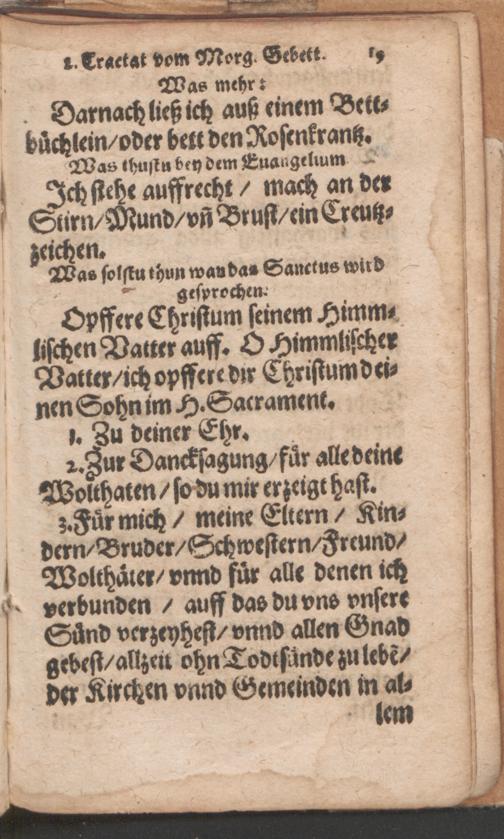 1. Tractat vom Morg. Gebett. 15
Was mehr:
Darnach ließ ich auß einem Bett-
büchlein/oder bett den Rosenkrantz.
Was thustu bey dem Euangelium
Ich stehe auffrecht / mach an der
Stirn/Mund/vñ Brust/ein Creutz-
zeichen.
Was solstu thun wan das Sanctus wird
gesprochen:
Opffere Christum seinem Himm-
lischen Vatter auff. O Himmlischer
Vatter/ich opffere dir Christum dei-
nen Sohn im H. Sacrament.
1. Zu deiner Ehr.
2. Zur Dancksagung/für alle deine
Wolthaten/so du mir erzeigt hast.
3. Für mich / meine Eltern / Kin-
dern/Bruder/Schwestern/Freund/
Wolthäter/vnnd für alle denen ich
verbunden / auff das du vns vnsere
Sünd verzeyhest/vnnd allen Gnad
gebest/allzeit ohn Todtsünde zu lebẽ/
der Kirchen vnnd Gemeinden in al-
lem